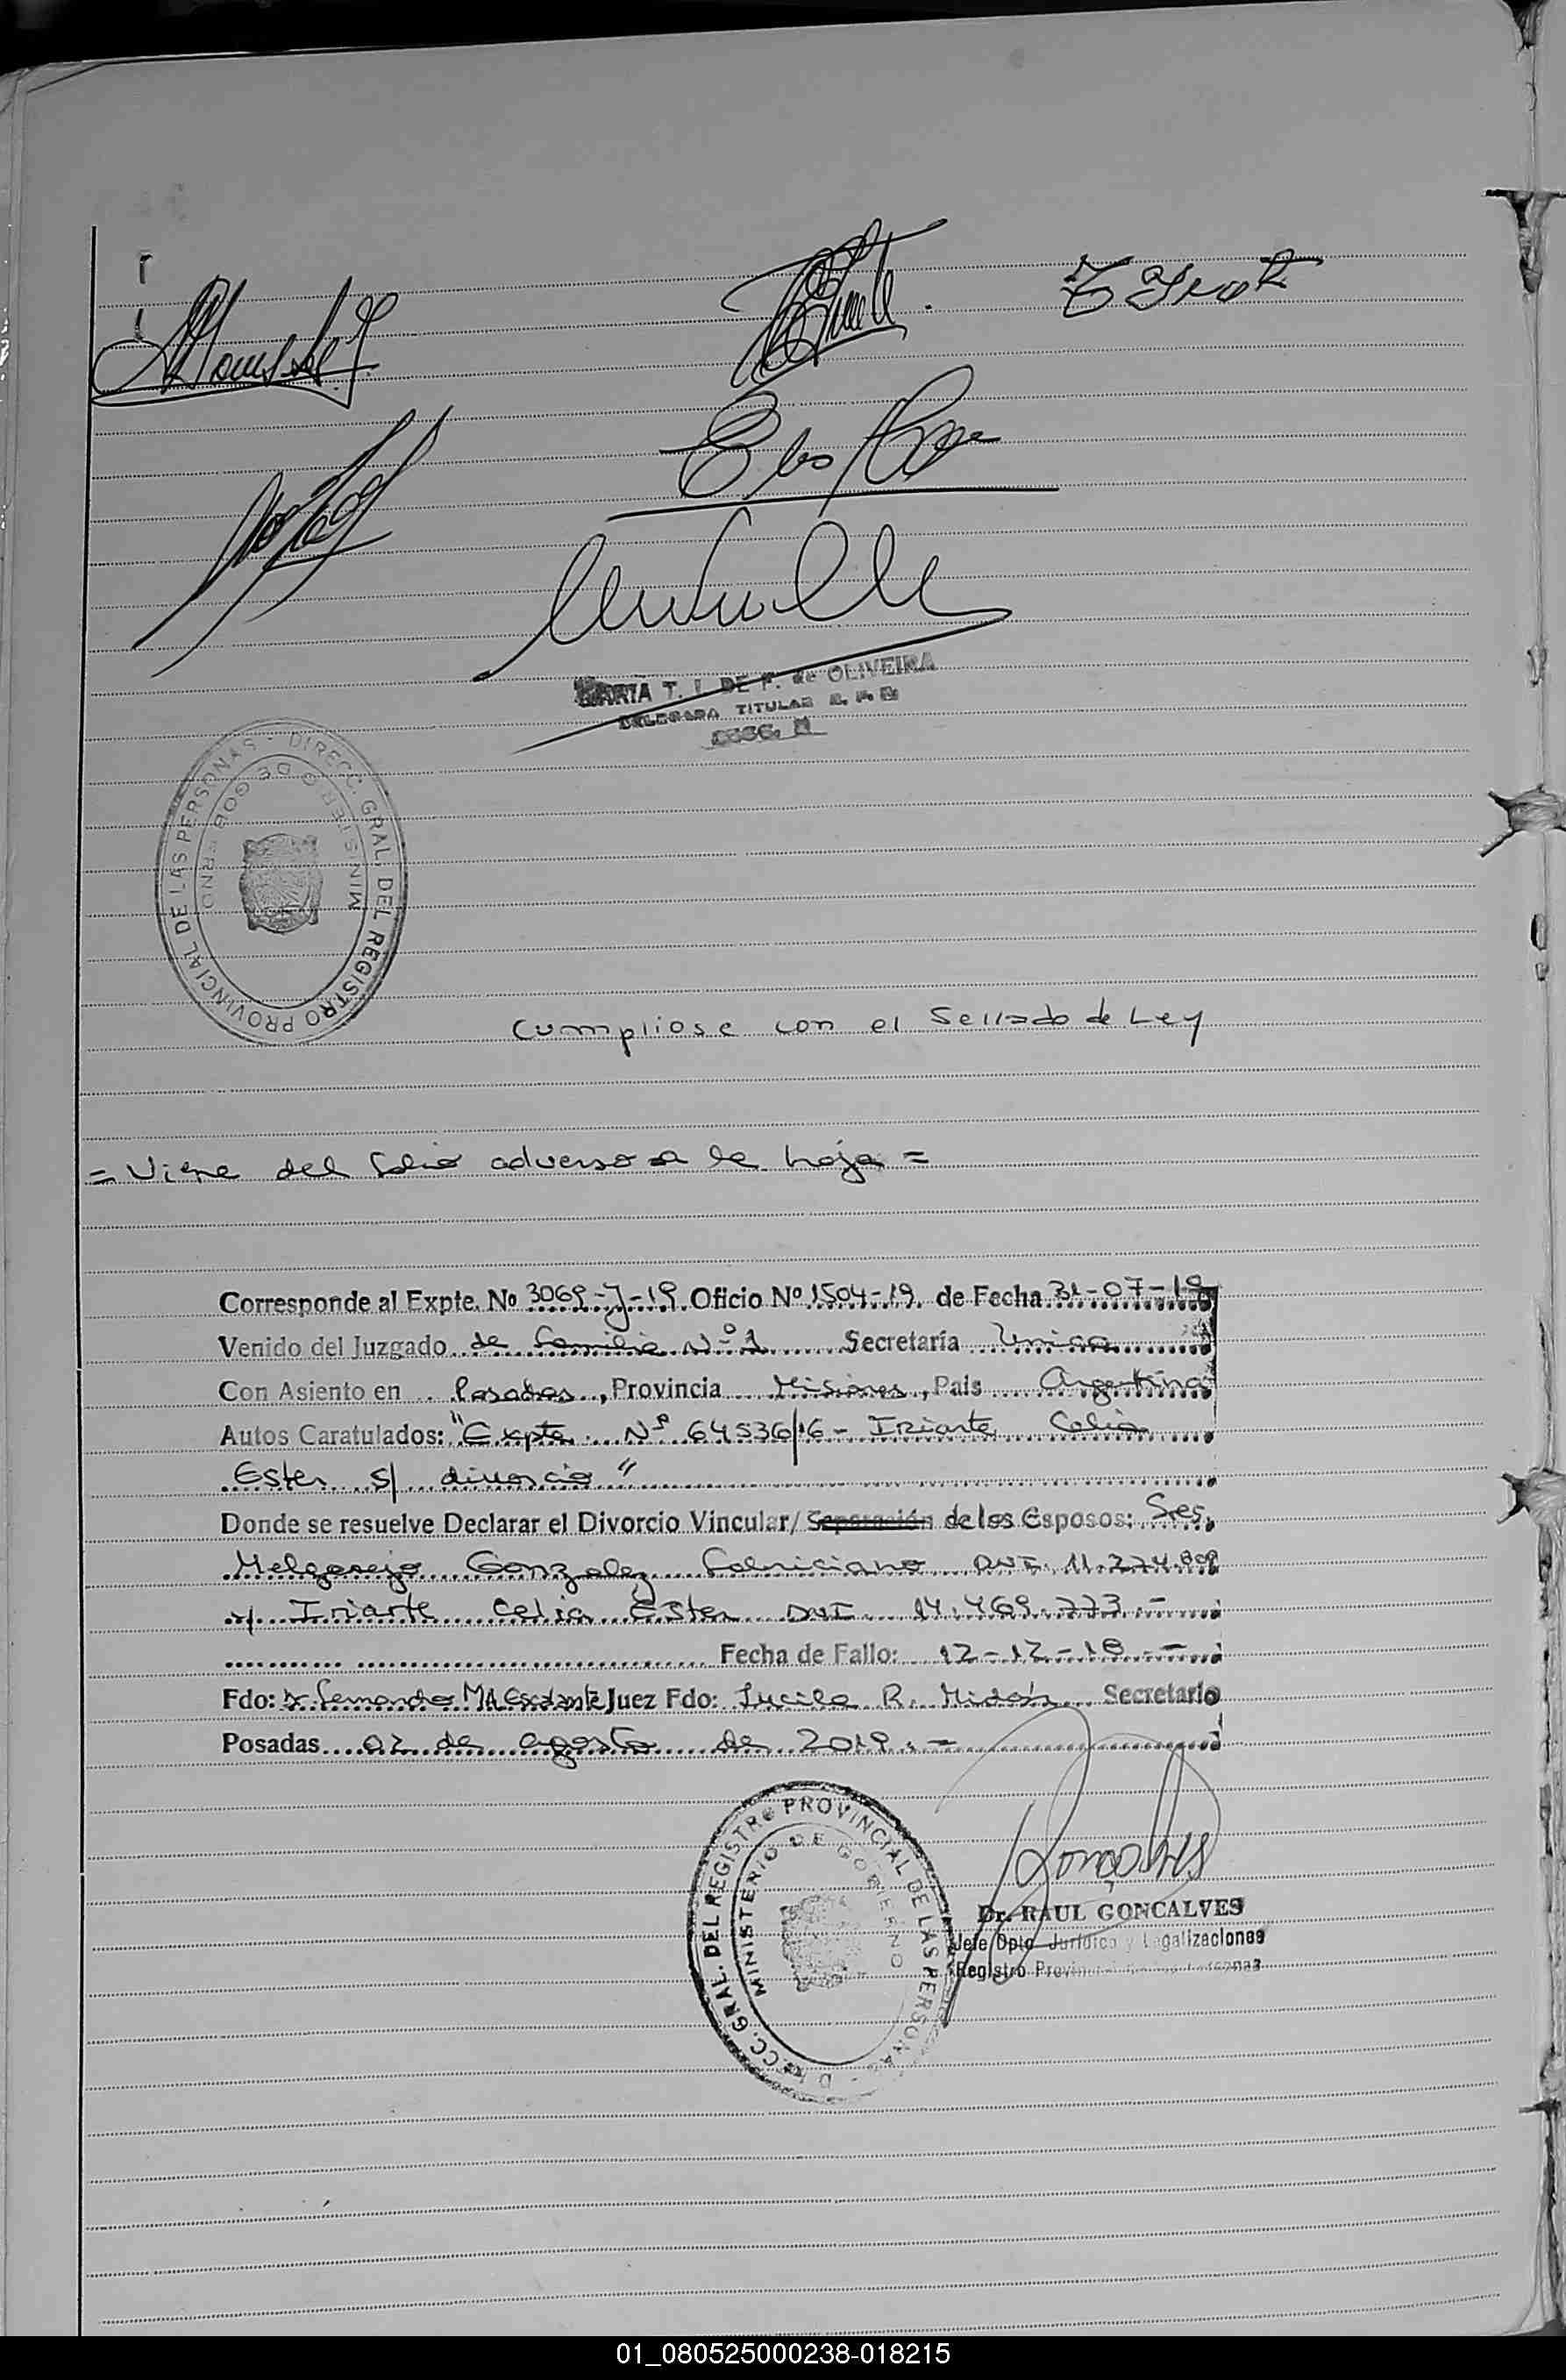 MARIA T. I. DE F. de OLIVEIRA
DELEGADA TITULAR
DIRECC. GRAL. DEL REGISTRO PROVINCIAL DE LAS PERSONAS -
MINISTERIO DE GOBIERNO
Cumpliose con el Sellado de Ley
= Viene del folio adverso a la hoja =
Corresponde al Expte. No 3069-J-19 Oficio Nº 1504-19. de Fecha 31-07-19
Venido del Juzgado de Familia Nº 1 Secretaría Unica
Con Asiento en Posadas, Provincia Misiones, Pais Argentina
Autos Caratulados: "Expte. Nº 64536/16 - IRiarte, Celia
Ester s/ divorcio"
Donde se resuelve Declarar el Divorcio Vincular/ Separación de los Esposos: Sres.
Melgarejo Gonzalez Feliciano DNI. 11.274.809
y/ Iriarte Celia Ester DNI 14.469.773.-
Fecha de Fallo: 12-12-18.-
Fdo: Dr. Fernando MA Escalante Juez Fdo: Lucila R. Midón Secretario
Posadas 02 de agosto de 2019.-
DIRECC. GRAL. DEL REGISTRO PROVINCIAL DE LAS PERSONAS -
MINISTERIO DE GOBIERNO
Dr. RAUL GONCALVES
Jefe Dpto. Jurídico y Legalizaciones
Registro Provincial de las Personas
01_080525000238-018215